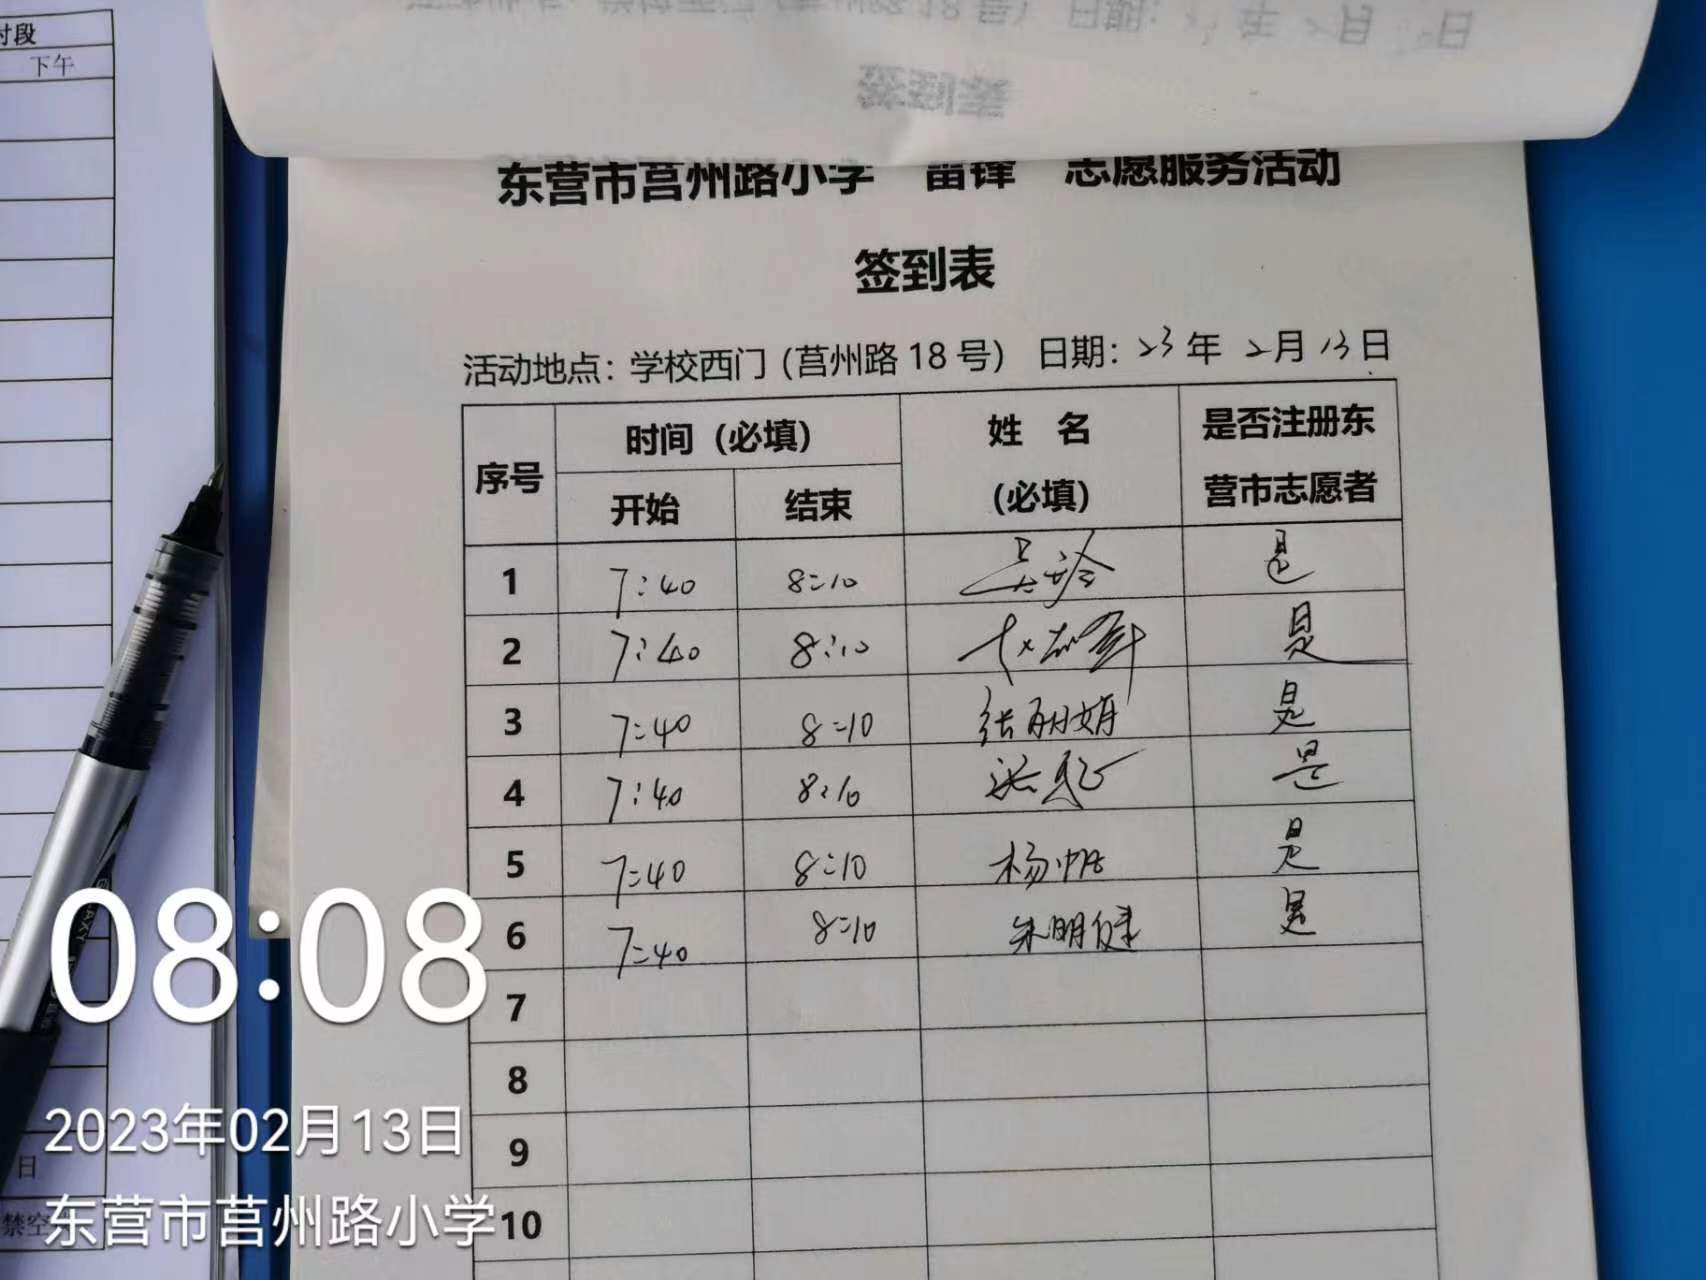 时段
下午
东营市莒州路小学 雷锋 志愿服务活动
签到表
活动地点：学校西门（莒州路 18 号） 日期：23 年 2 月 13 日
序号 时间（必填） 姓 名（必填） 是否注册东营市志愿者
开始 结束
1 7:40 8:10 是
2 7:40 8:10 是
3 7:40 8:10 张丽娟 是
4 7:40 8:10 是
5 7:40 8:10 杨帆 是
6 7:40 8:10 朱明健 是
7
8
9
10
08:08
2023年02月13日
东营市莒州路小学
日
禁空